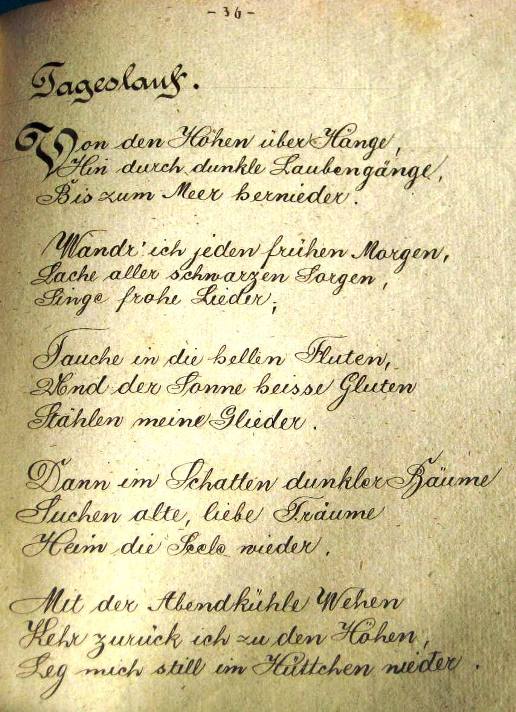 - 36 -
Tageslauf.
Von den Höhen über Hänge,
Hin durch dunkle Laubengänge,
Bis zum Meer hernieder.
Wandr' ich jeden frühen Morgen,
Lache aller schwarzen Sorgen,
Singe frohe Lieder;
Tauche in die hellen Fluten,
Und der Sonne heisse Gluten
Stählen meine Glieder.
Dann im Schatten dunkler Bäume
Suchen alte, liebe Träume
Heim die Seele wieder.
Mit der Abendkühle Wehen
Kehr zurück ich zu den Höhen,
Leg mich still im Hüttchen nieder.